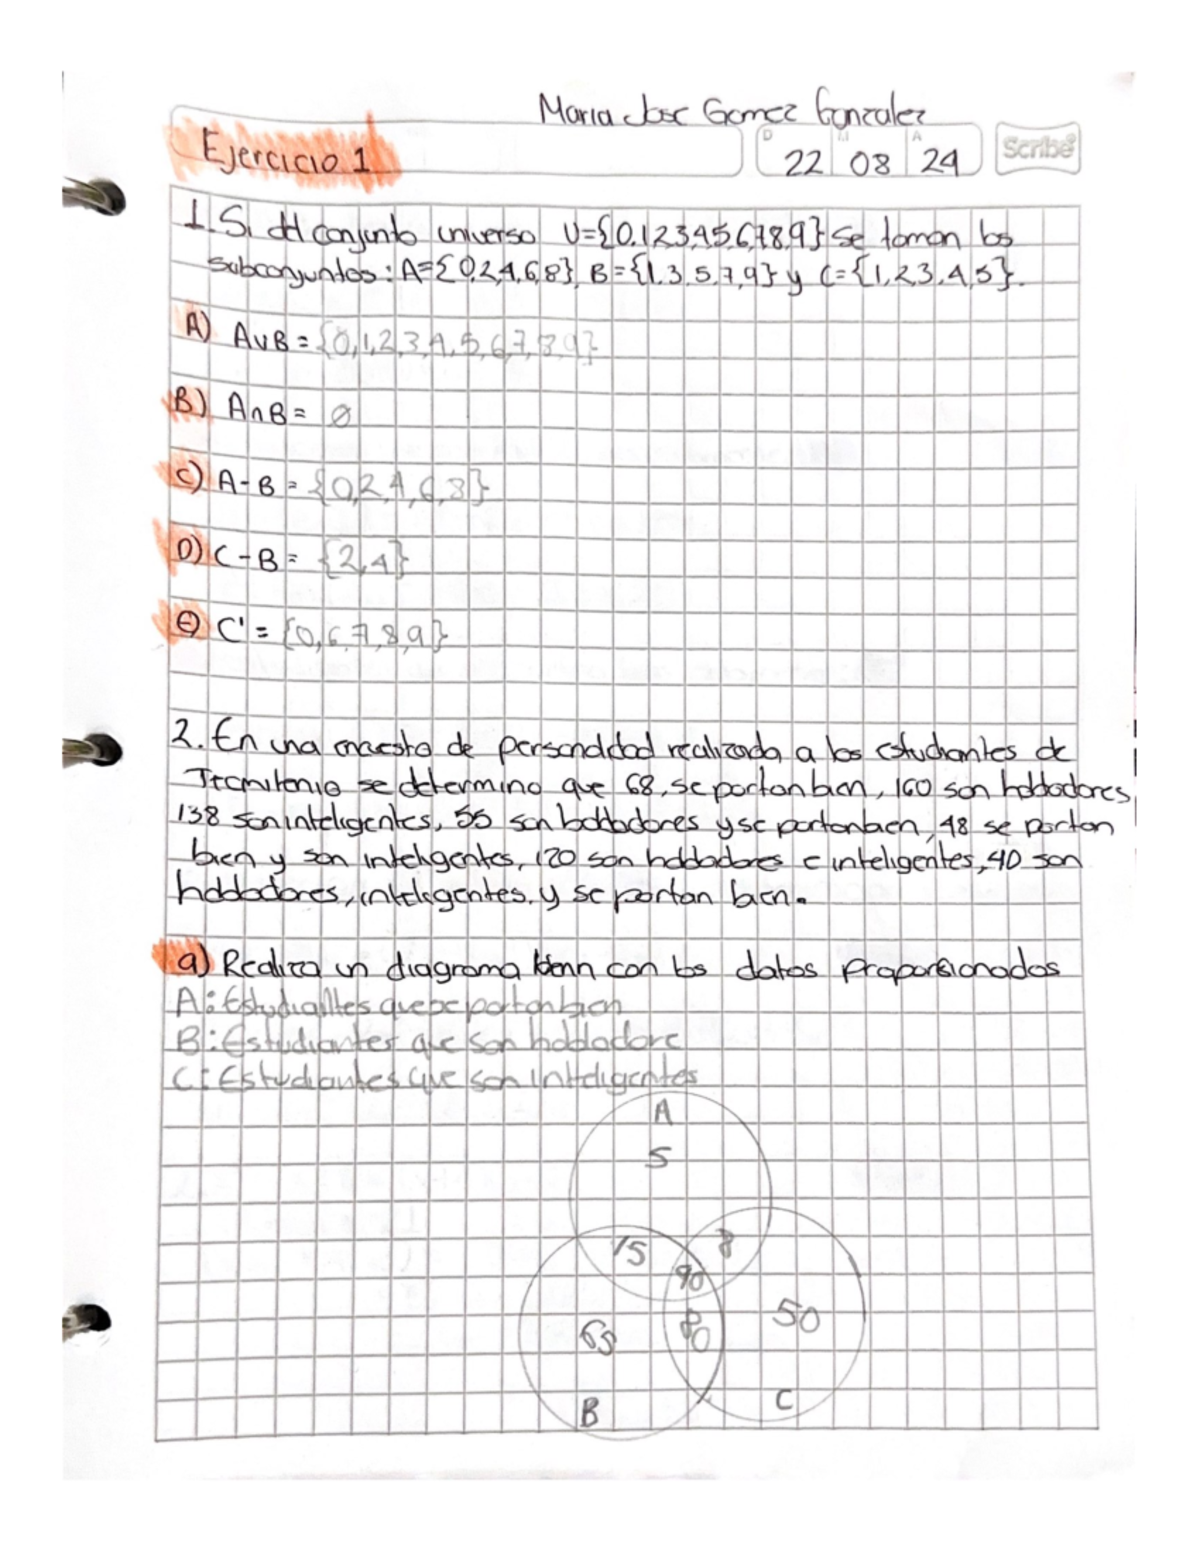 Maria Jose Gomez Gonzalez
Ejercicio 1
D M A
22 08 24
Scribe
1. Si del conjunto universo U={0,1,2,3,4,5,6,7,8,9} se toman los
subconjuntos: A={0,2,4,6,8}, B={1,3,5,7,9} y C={1,2,3,4,5}.
A) A∪B = {0,1,2,3,4,5,6,7,8,9}
B) A∩B = ∅
C) A-B = {0,2,4,6,8}
D) C-B = {2,4}
E) C' = {0,6,7,8,9}
2. En una encuesta de personalidad realizada a los estudiantes de
Tecmilenio se determino que 68, se portan bien, 160 son habladores,
138 son inteligentes, 55 son habladores y se portan bien, 48 se portan
bien y son inteligentes, 120 son habladores e inteligentes, 40 son
habladores, inteligentes, y se portan bien.
a) Realiza un diagrama Venn con los datos proporsionados
A: Estudiantes que se portan bien
B: Estudiantes que son habladore
C: Estudiantes que son inteligentes
A
5
15 8
40
65 80 50
B C